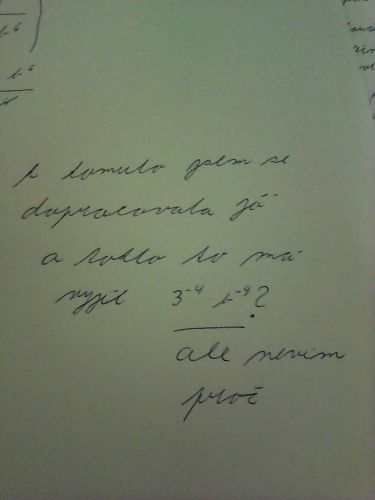 k tomuto jsem se
dopracovala já
a tohle to má
vyjít 3⁻⁴ · b⁻⁴?
ale nevím
proč